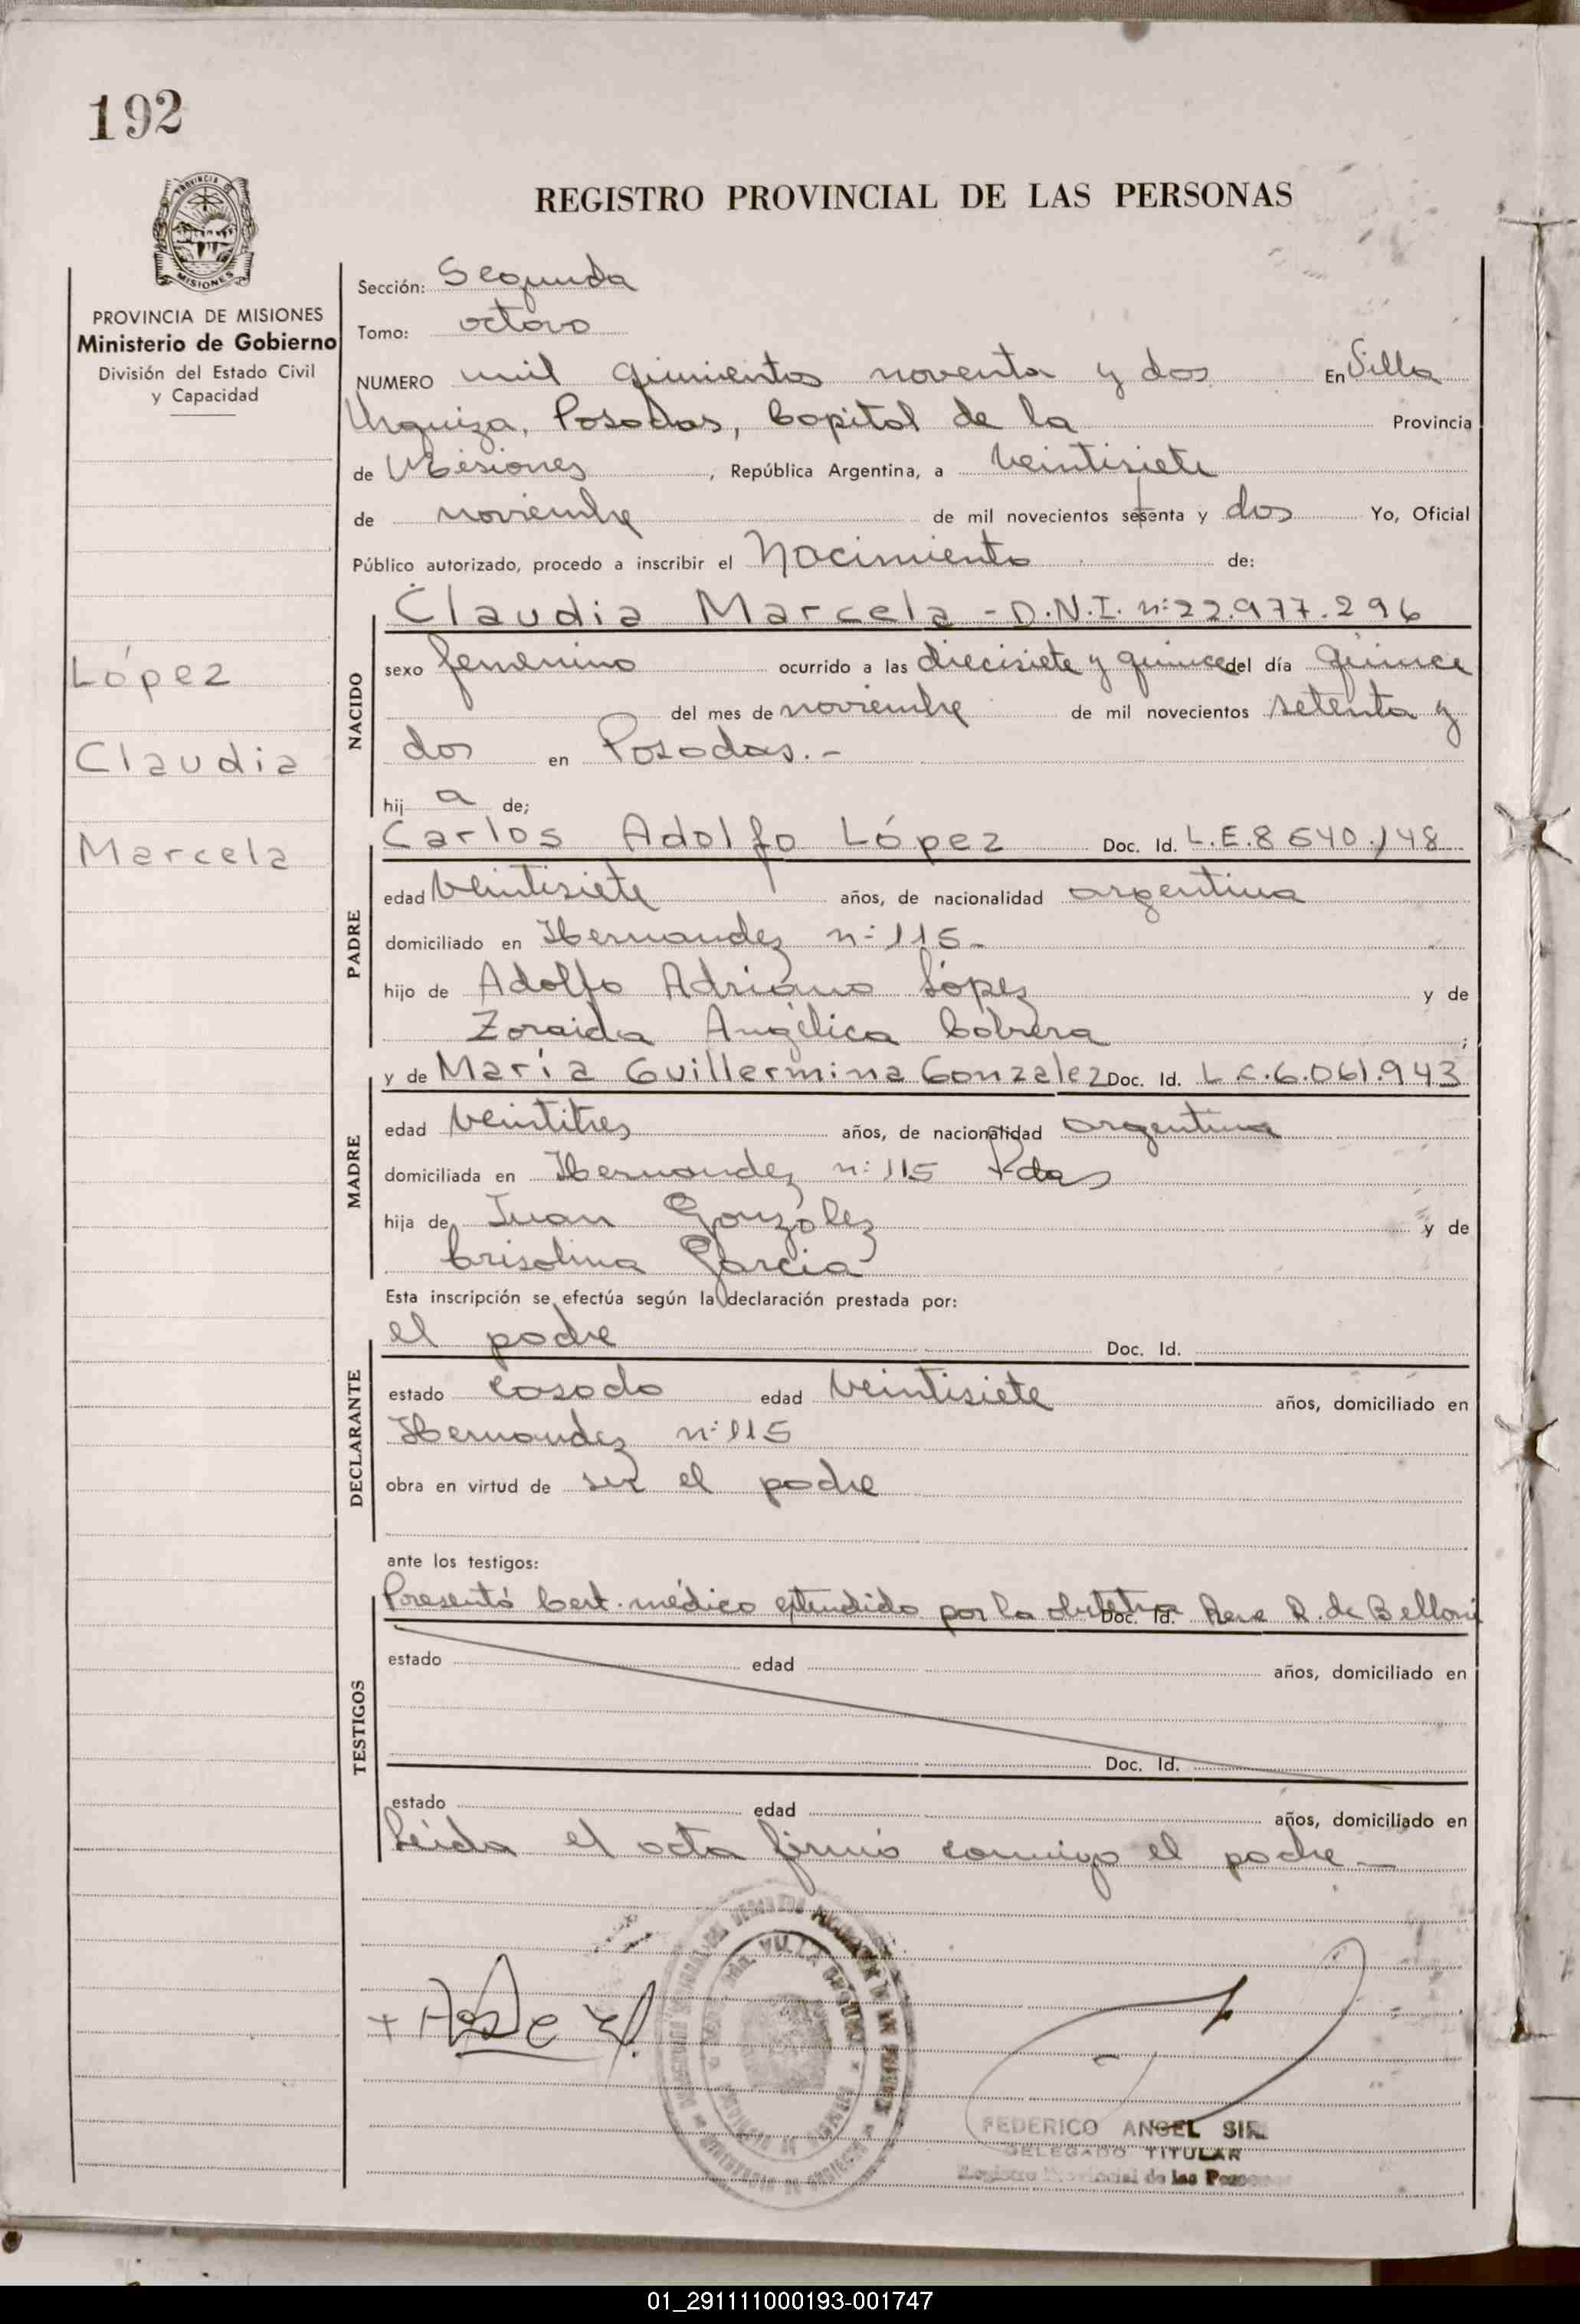 192
PROVINCIA DE
MISIONES
REGISTRO PROVINCIAL DE LAS PERSONAS
PROVINCIA DE MISIONES
Ministerio de Gobierno
División del Estado Civil
y Capacidad
López
Claudia
Marcela
Sección: Segunda
Tomo: octavo
NUMERO mil quinientos noventa y dos En Villa
Urquiza, Posadas, Capital de la Provincia
de Misiones, República Argentina, a veintisiete
de noviembre de mil novecientos setenta y dos Yo, Oficial
Público autorizado, procedo a inscribir el Nacimiento de:
NACIDO
Claudia Marcela - D.N.I. nº 22.977.296
sexo femenino ocurrido a las diecisiete y quince del día quince
del mes de noviembre de mil novecientos setenta y
dos en Posadas.-
hij a de;
PADRE
Carlos Adolfo López Doc. Id. L.E. 8 640.148
edad veintisiete años, de nacionalidad argentina
domiciliado en Hernandez nº 115-
hijo de Adolfo Adriano López y de
Zoraida Angélica Cabrera;
MADRE
y de María Guillermina Gonzalez Doc. Id. L.C. 6.061.943
edad veintitres años, de nacionalidad argentina
domiciliada en Hernandez nº 115 Pdas
hija de Juan González y de
Crisolina Garcia
Esta inscripción se efectúa según la declaración prestada por:
DECLARANTE
el padre Doc. Id.
estado casado edad veintisiete años, domiciliado en
Hernandez nº 115
obra en virtud de ser el padre
ante los testigos:
TESTIGOS
Presentó Cert. médico extendido por la obstetra Doc. Id. R. de Belloni
estado edad años, domiciliado en
Doc. Id.
estado edad años, domiciliado en
Leida el acta firmó conmigo el padre-
VILLA URQUIZA
FEDERICO ANGEL SIR
DELEGADO TITULAR
Registro Provincial de las Personas
01_291111000193-001747